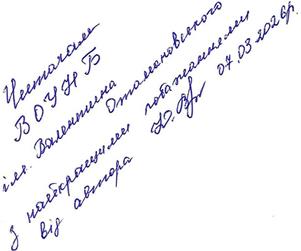 Читачам
ВОУНБ
ім. Валентина Отамановського
з найкращими побажаннями
від автора
07.03.2026р.